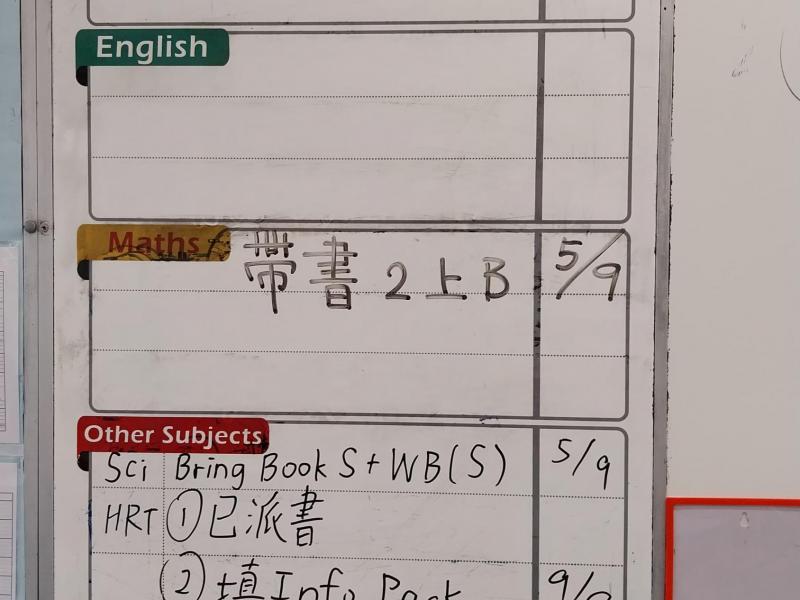 English
Maths 帶書 2上B 5/9
Other Subjects
Sci Bring Book S + WB(S) 5/9
HRT ①已派書
②填Info Pack 9/9